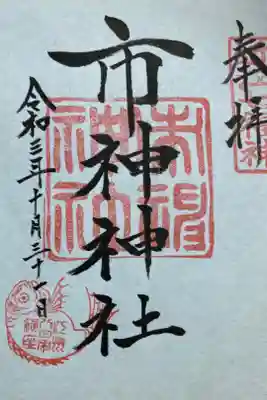 奉拝
市神神社
令和三年十月三十一日
市神神社